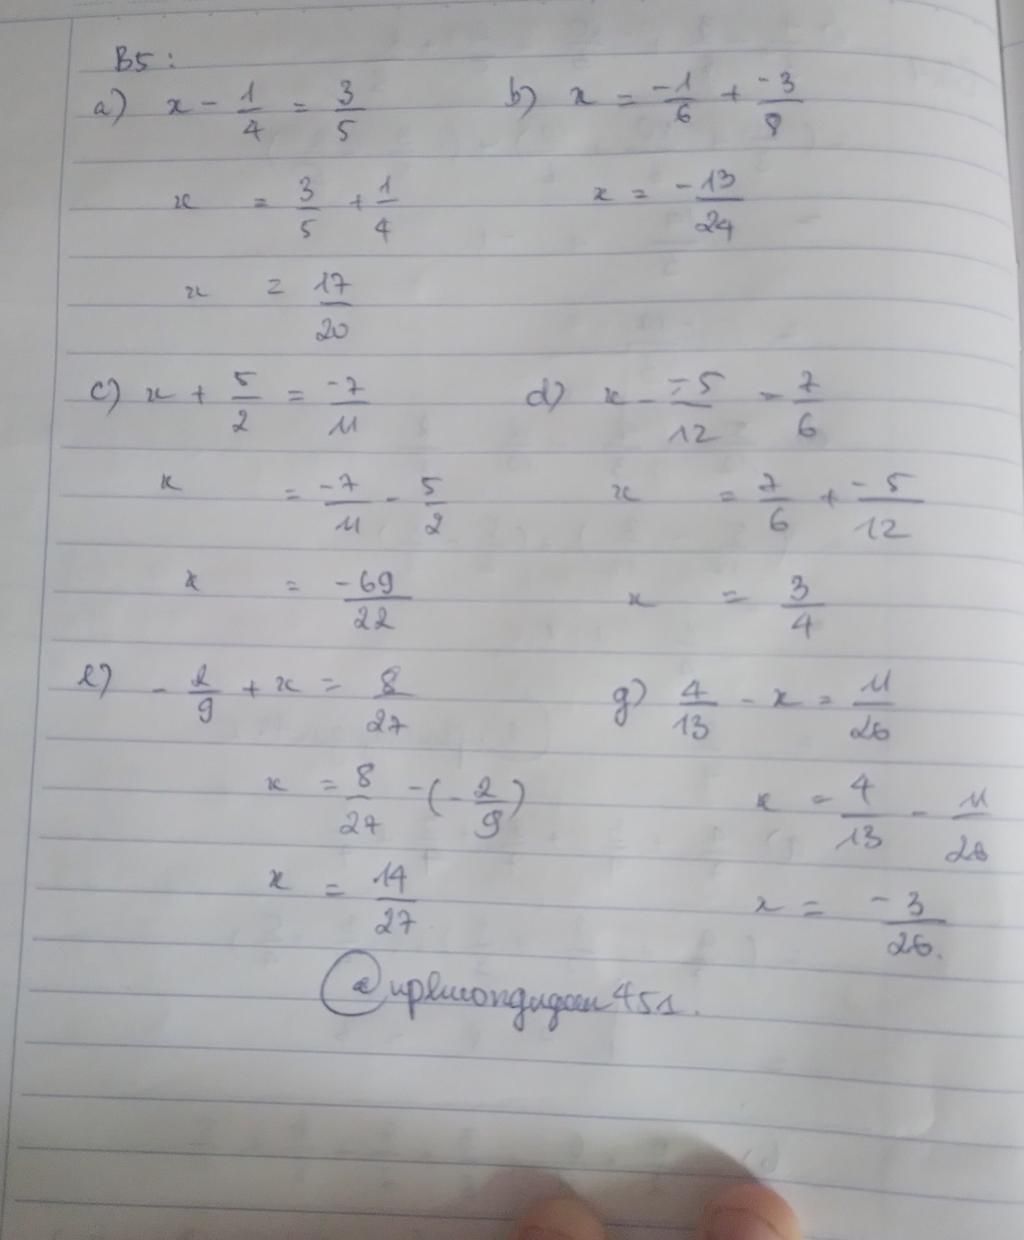 B5 :
a) x - 1/4 = 3/5
x = 3/5 + 1/4
x = 17/20
b) x = -1/6 + -3/8
x = -13/24
c) x + 5/2 = -7/11
x = -7/11 - 5/2
x = -69/22
d) x - -5/12 = 7/6
x = 7/6 + -5/12
x = 3/4
e) - 2/9 + x = 8/27
x = 8/27 - (- 2/9)
x = 14/27
g) 4/13 - x = 11/26
x = 4/13 - 11/26
x = -3/26.